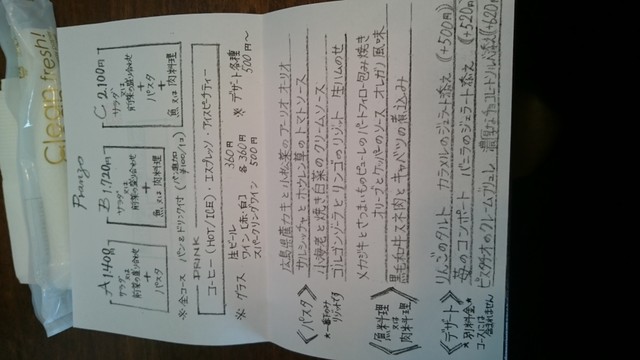 Clean fresh!
Pranzo
A 1408円
サラダ
又は
前菜の盛り合わせ
+
パスタ
B 1,720円
サラダ
又は
前菜の盛り合わせ
+
魚 又は 肉料理
C 2,100円
サラダ
又は
前菜の盛り合わせ
+
パスタ
+
魚 又は 肉料理
※全コース パンとドリンク付 (パン追加 ¥100/1コ)
DRINK
コーヒー(HOT/ICE)・エスプレッソ・アイスピーチティー
※グラス 生ビール 360円
ワイン[赤・白] 各360円
スパークリングワイン 500円
※デザート各種 500円〜
《パスタ》
広島県産カキと小松菜のアーリオオーリオ
サルシッチャとホウレン草のトマトソース
小海老と焼き白菜のクリームソース
ゴルゴンゾーラとリンゴのリゾット 生ハムのせ
《魚料理 又は 肉料理》
メカジキとさつまいものピューレのパートフィロー包み焼き
オリーブとケッパーのソース オレガノ風味
黒毛和牛スネ肉とキャベツの煮込み
《デザート》
★別料金★
コースには
含まれません
りんごのタルト カラメルのジェラート添え (+500円)
苺のコンポート バニラのジェラート添え (+520円)
ピスタチオのクレームブリュレ 濃厚なチョコレートジェラート添え (+620円)